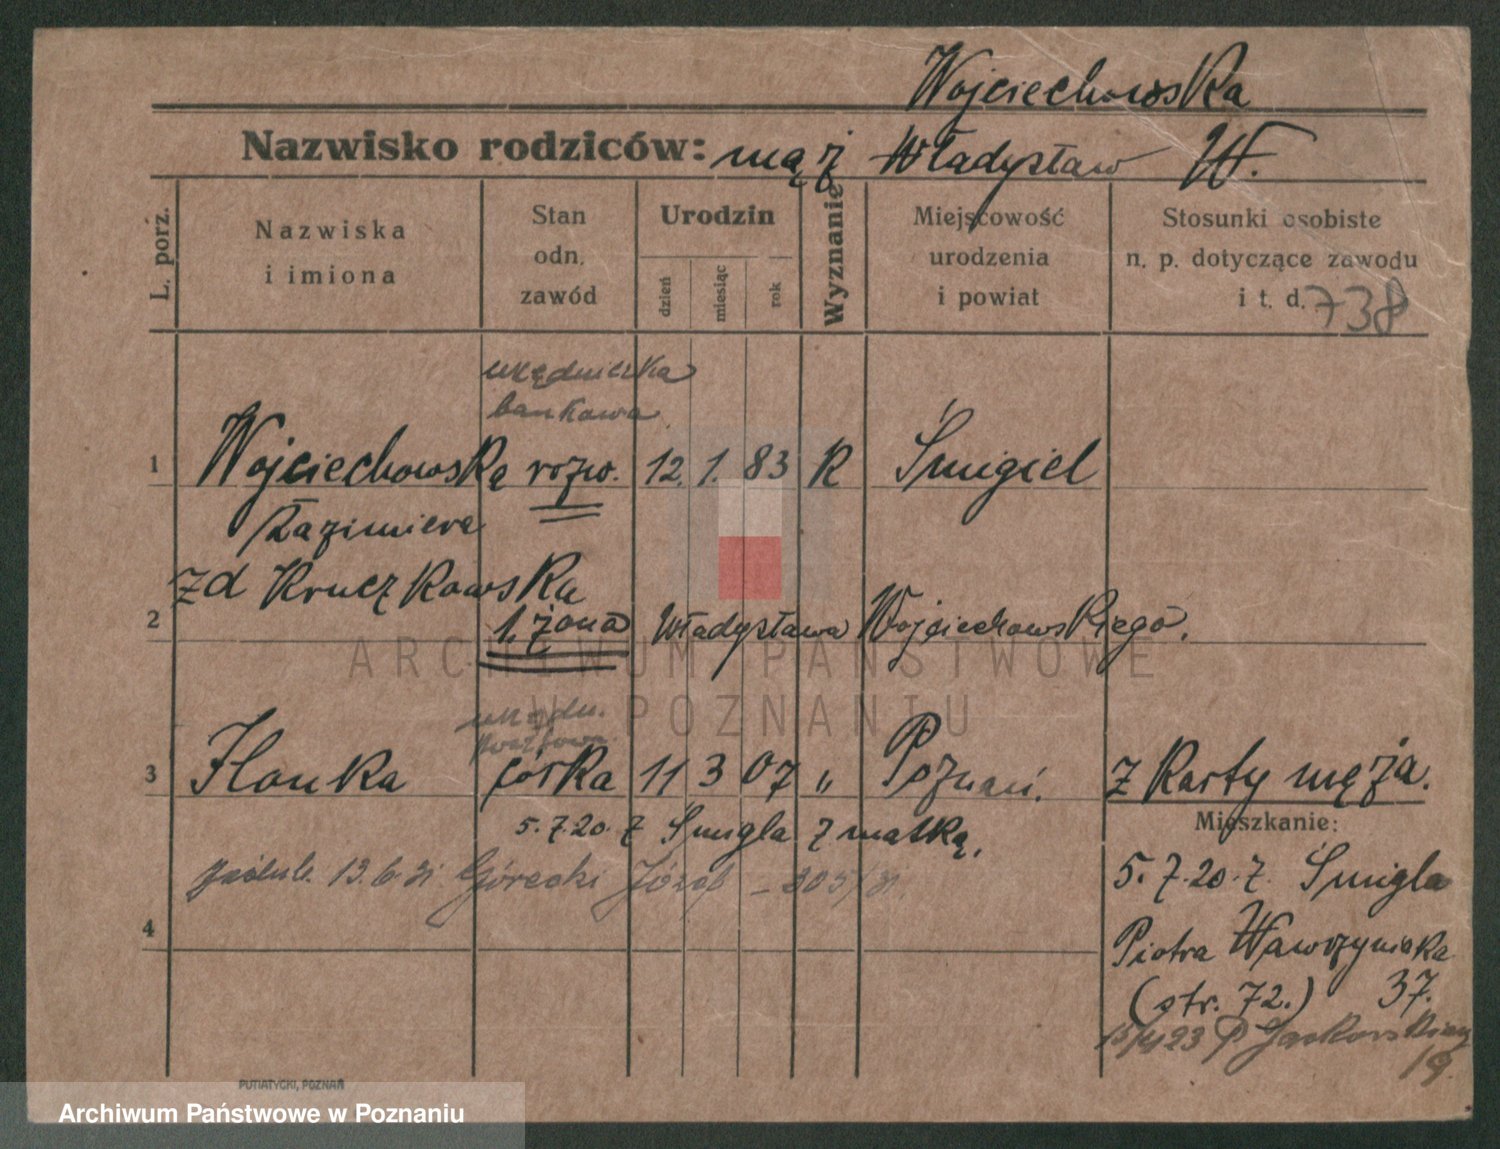 Wojciechowska
Nazwisko rodziców: mąż Władysław W.
L. porź.
Nazwiska i imiona
Stan odn. zawód
Urodzin
dzień
miesiąc
rok
Wyznanie
Miejscowość urodzenia i powiat
Stosunki osobiste n. p. dotyczące zawodu i t. d.
738
urzędniczka
bankowa
1 Wojciechowska rozw. 12. 1. 83 R Śmigiel
Kazimiera
zd Kruczkowska
2 1. żona Władysława Wojciechowskiego.
urzędn.
3 Ilonka córka 11 3 07 " Poznań. z Karty męża.
5.7.20. z Śmigla z matką.
Mieszkanie:
13.6.31 Górecki Józef
5.7.20. z Śmigla
4
Piotra Wawrzyniaka
(str. 72.) 37.
PUTIATYCKI, POZNAŃ
ARCHIWUM PAŃSTWOWE
W POZNANIU
Archiwum Państwowe w Poznaniu